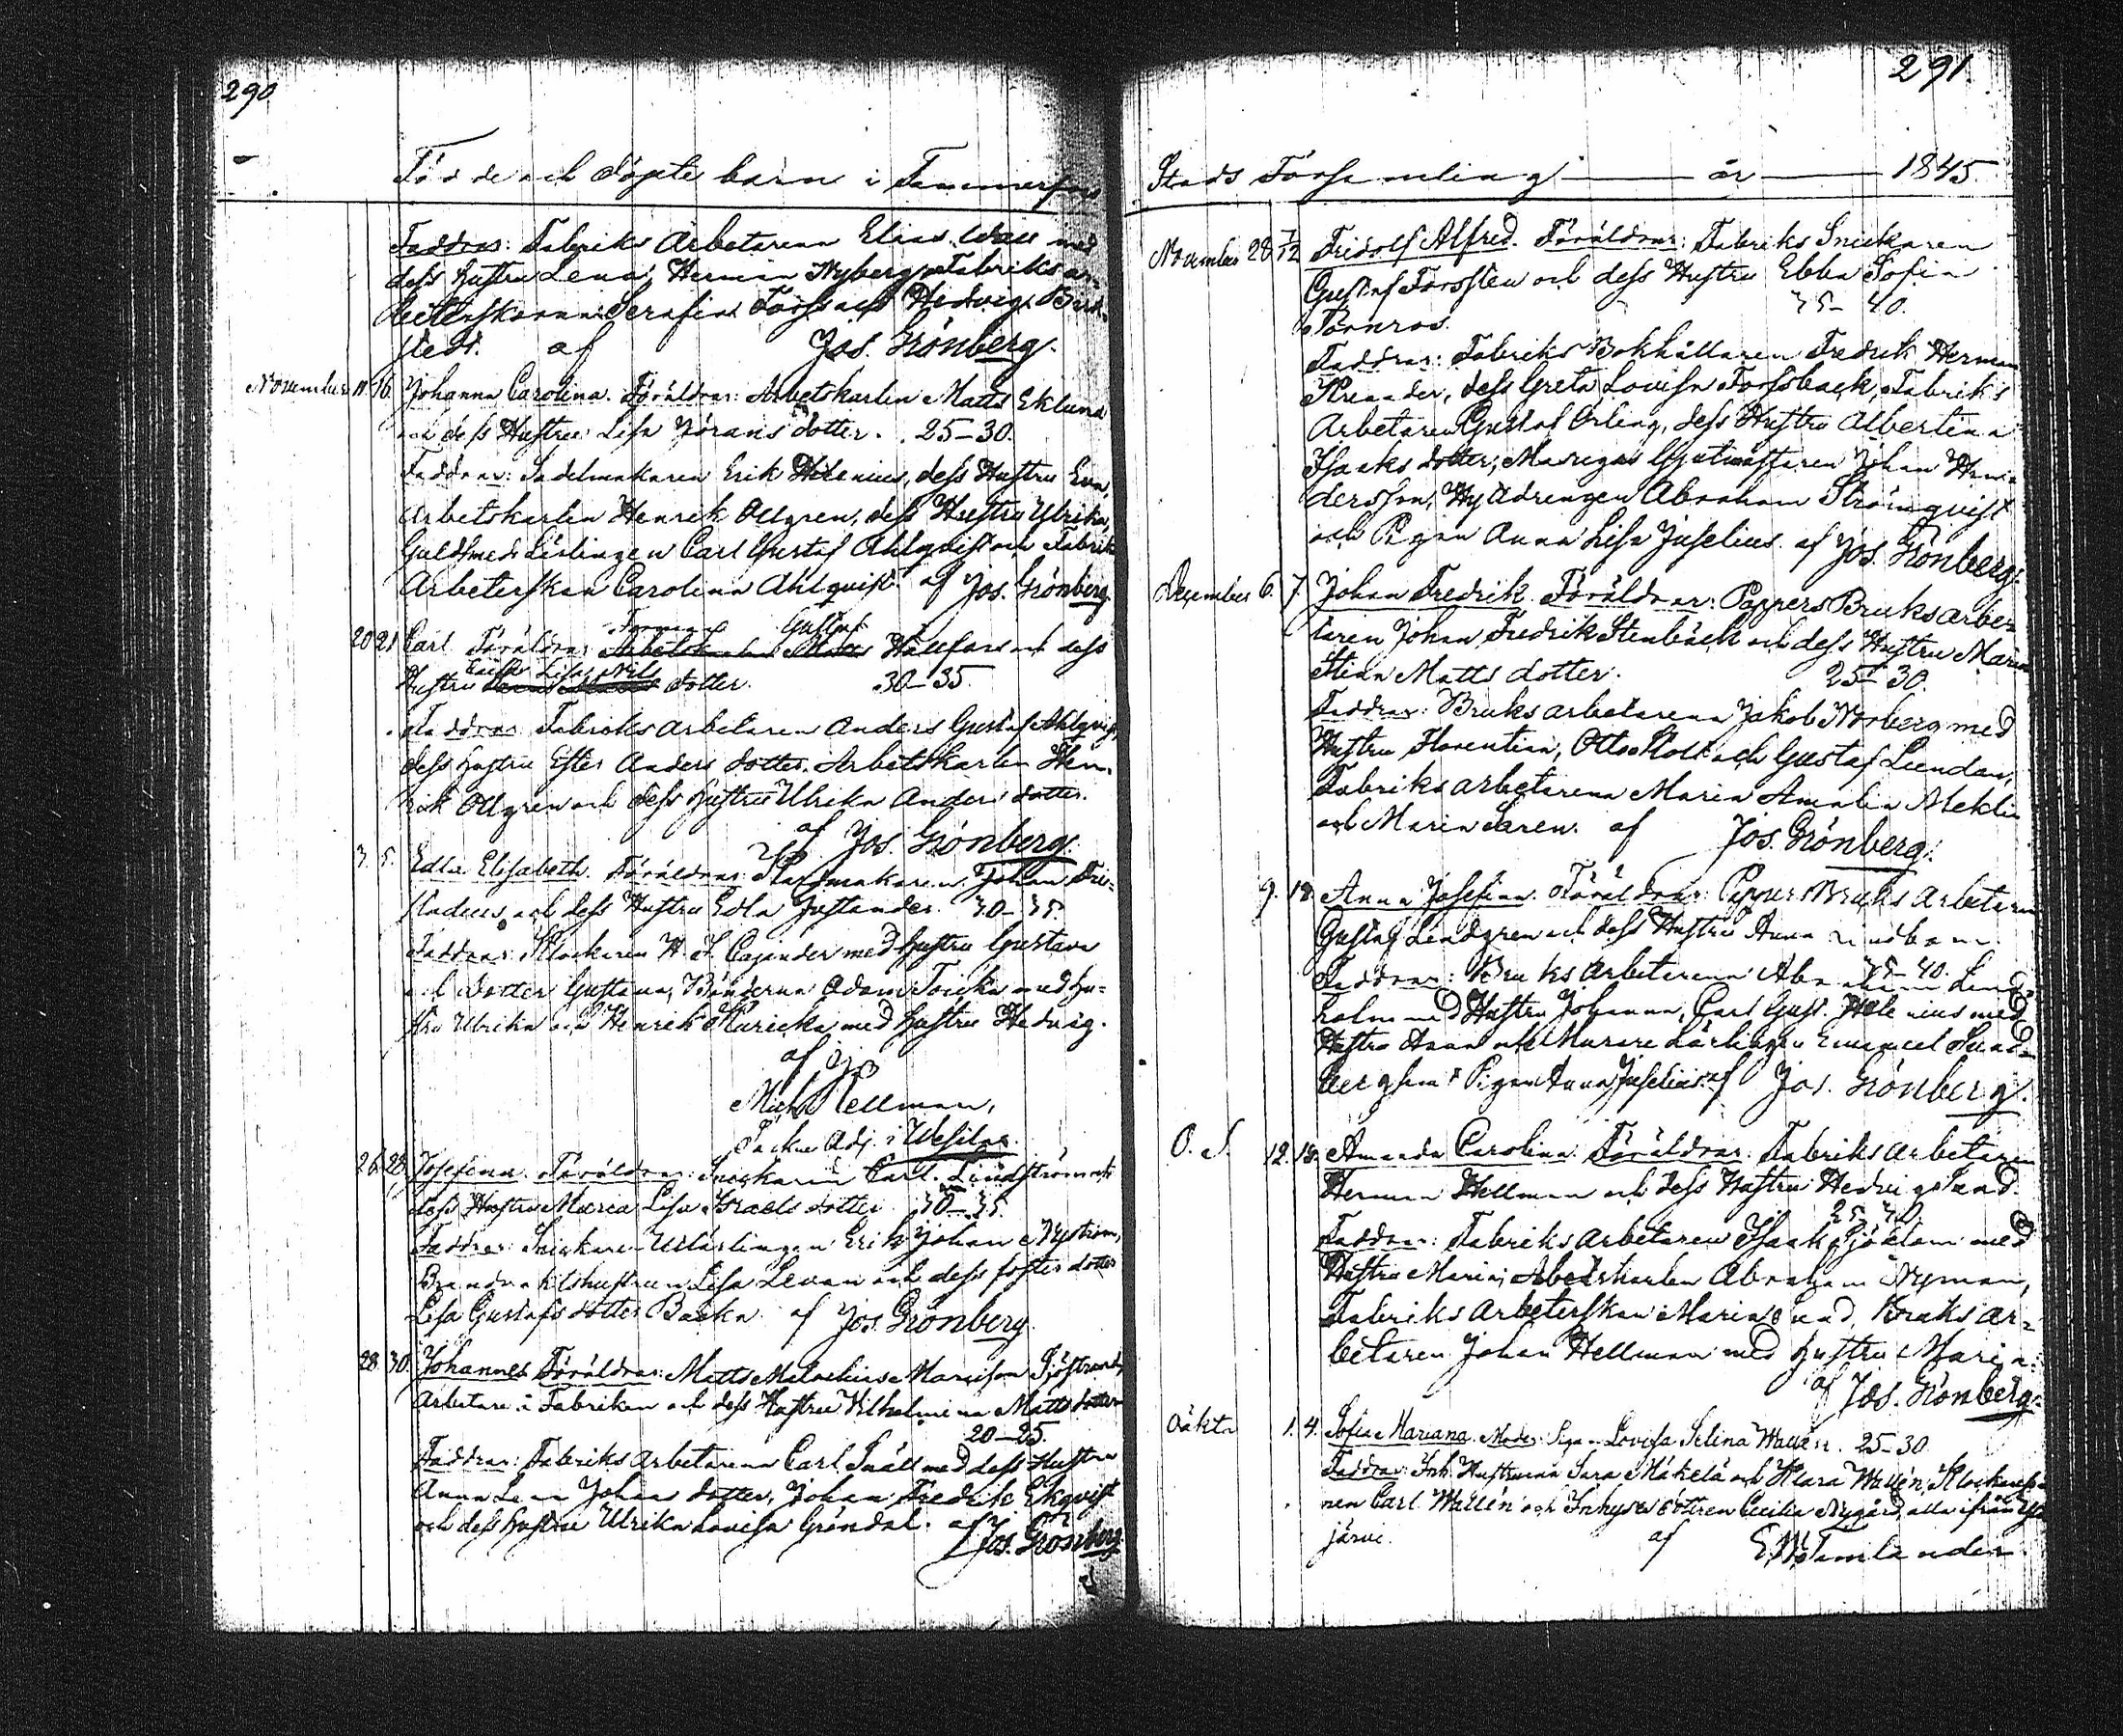 290
Födde och döpte barn i Tammerfors
Faddrar: Fabriks Arbetaren Elias Wall med
dess hustru Lena, Herman Nyberg, Fabriks ar-
beterskorna Serafina Forss och Hedvig
stedt. af Jos. Grönberg.
November 11. 16. Johanna Carolina. Föräldrar: Arbetskarlen Matts Eklund
och dess Hustru Lisa Jörans dotter. 25–30.
Faddrar: Sadelmakaren Erik Helenius, dess Hustru Eva,
Arbetskarlen Henrik Ollgren, dess Hustru Ulrika,
Guldsmeds Lärlingen Carl Gustaf Ahlqvist och Fabriks
Arbeterskan Carolina Ahlqvist. af Jos. Grönberg.
Gustaf
20 21 Carl Föräldrar Hällfors och dess
Caisa Lisa Nils
Hustru dotter. 30–35.
Faddrar: Fabriks arbetaren Anders Gustaf Ahlqvist,
dess hustru Ester Anders dotter. Arbetskarlen Hen-
rik Ollgren och dess hustru Ulrika Anders dotter.
af Jos. Grönberg.
3. 5. Edla Elisabeth. Föräldrar: Johan
och dess Hustru Edla Justander. 30–35.
Faddrar: Klockaren H. J. Cajander med hustru Gustava
och dotter Gustava, Bönderna Adam Toicka med hu-
stru Ulrika och Henrik Kuricka med hustru Hedvig.
af
Mich. Hellman,
Adj. i Wesilax.
26. 28. Josefina. Föräldrar: Snickaren Carl Lindström och
dess Hustru Maria Lisa Israels dotter 30–35.
Faddrar: Snickare Lärlingen Erik Johan Nyström,
Brandvaktshustrun Lisa Levan och dess foster dotter
Lisa Gustafs dotter Backa. af Jos. Grönberg.
28. 30. Johannes Föräldrar: Matts Sjöstrand,
Arbetare i Fabriken och dess Hustru Wilhelmina Matts dotter
20–25.
Faddrar: Fabriks Arbetaren Carl Snäll med dess Hustru
Anna Lena Johans dotter, Johan Fredrik Ekqvist
och dess hustru Ulrika Lovisa Gröndal. af
Jos. Grönberg
291.
Stads Församling år 1845.
November 28 7/12 Fridolf Alfred. Föräldrar: Fabriks Snickaren
Gustaf Forsstén och dess Hustru Ebba Sofia
35–40.
Törnros.
Faddrar: Fabriks Bokhållaren Fredrik Herman
dess Greta Lovisa Forssback, Fabriks
Arbetaren Gustaf Orling, dess Hustru Albertina
Isaaks dotter; Johan Hen-
dersson, Abraham Strömqvist
och Pigan Anna Lisa Juselius. af Jos. Grönberg.
December 6. 7. Johan Fredrik. Föräldrar: Pappers Bruks arbe-
taren Johan Fredrik Stenbäck och dess Hustru Maria
Stina Matts dotter. 25–30.
Faddrar: Bruks arbetarena Jakob Norberg med
Hustru Florentina, Otto Roth och Gustaf Lundan,
Fabriks arbetarena Maria Amalia Meklin
och Maria Saren. af Jos. Grönberg.
9. 18. Anna Josefina. Föräldrar: Pappers Bruks Arbetaren
Gustaf Lindgren och dess Hustru Anna Lindbom.
35–40.
Faddrar: Bruks Arbetarena Abraham Lind-
holm med Hustru Johanna, Carl Gust. Helenius med
Hustru Anna och Murare Lärlingen Emanuel Sund-
berg samt Pigan Anna Juselius. af Jos. Grönberg.
O. S. 12. 18. Amanda Carolina. Föräldrar: Fabriks arbetaren
Herman Hellman och dess Hustru Hedvig Sund.
25–30
Faddrar: Fabriks arbetaren Isaak Sjöblom med
Hustru Maria, Arbetskarlen Abraham Nyman,
Fabriks Arbeterskan Maria Sund, Bruks ar-
betaren Johan Hellman med hustru Maria.
af Jos. Grönberg.
Oäkta 1. 4. Sofia Mariana. Moder: Pigan Lovisa Selina Wallén. 25–30.
Faddrar: Inh. Hustrurna Sara Mäkelä och Klara Wallén, Klockareso-
nen Carl Wallén och Inhyses dottren Cecilia Nygård, alla ifrån Ylö-
järvi. af E. W. Temlander.